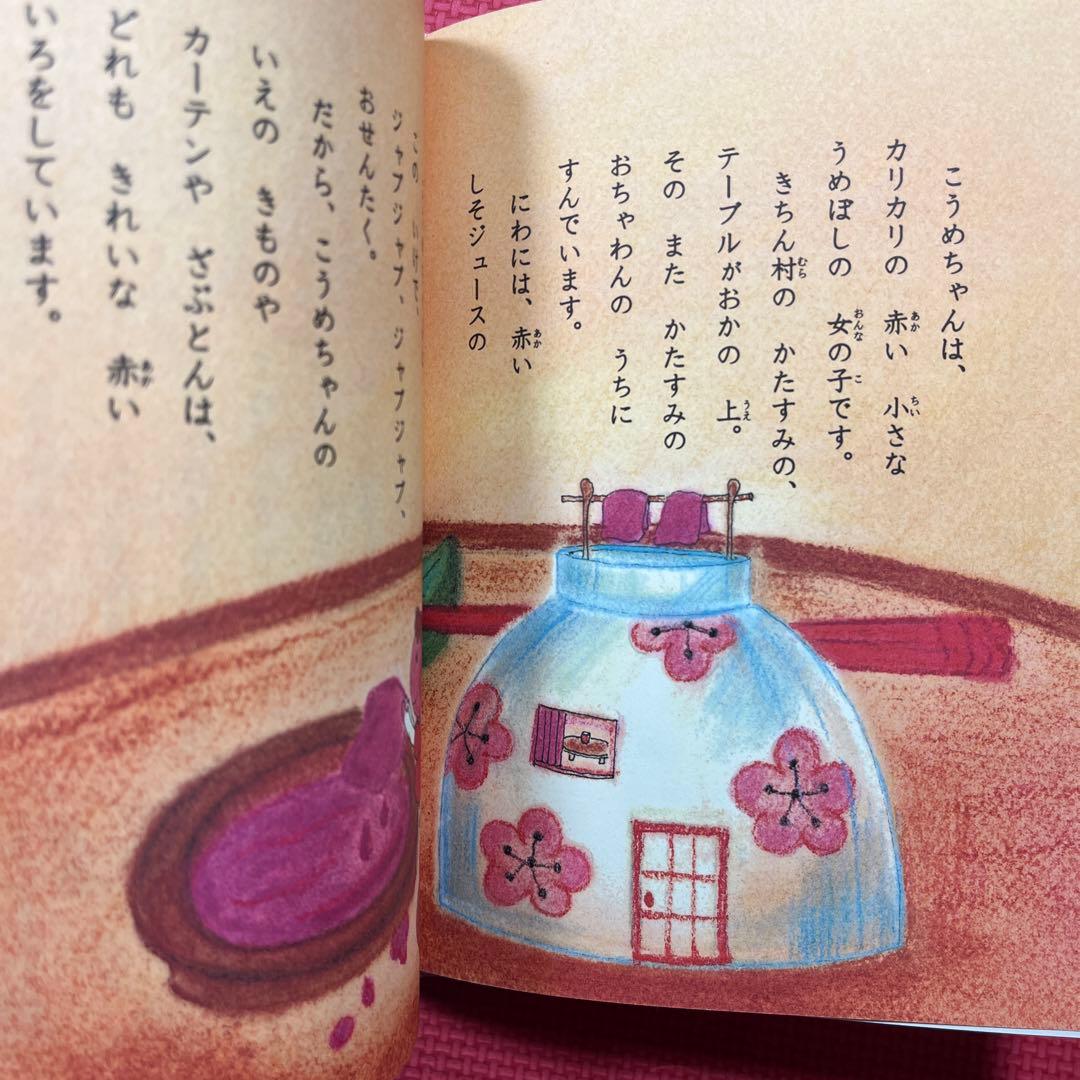 こうめちゃんは、
カリカリの 赤い 小さな
うめぼしの 女の子です。
きちん村の かたすみの、
テーブルがおかの 上。
その また かたすみの
おちゃわんの うちに
すんでいます。
にわには、赤い
しそジュースの
この いけで、
ジャブジャブ、ジャブジャブ、
おせんたく。
だから、こうめちゃんの
いえの きものや
カーテンや ざぶとんは、
どれも きれいな 赤い
いろをしています。